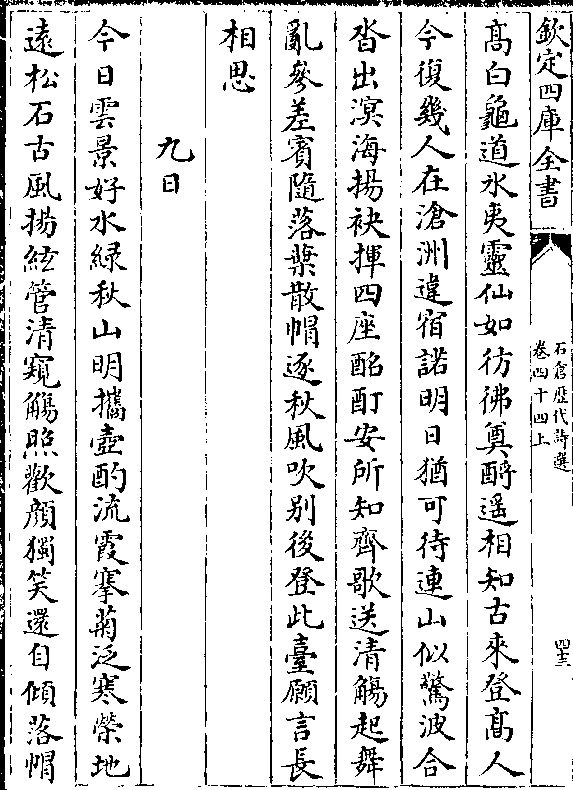 欽定四庫全書
石倉歷代詩選
卷四十四上
四三
髙白龜道氷夷靈仙如彷彿奠酹遥相知古來登髙人
今復幾人在滄洲違宿諾明日猶可待連山似驚波合
沓出溟海揚袂揮四座酩酊安所知齊歌送清觴起舞
亂參差賓隨落葉散帽逐秋風吹别後登此臺願言長
相思
九日
今日雲景好水緑秋山明攜壺酌流霞搴菊泛寒榮地
逺松石古風揚絃管清窺觴照歡顔獨笑還自傾落帽